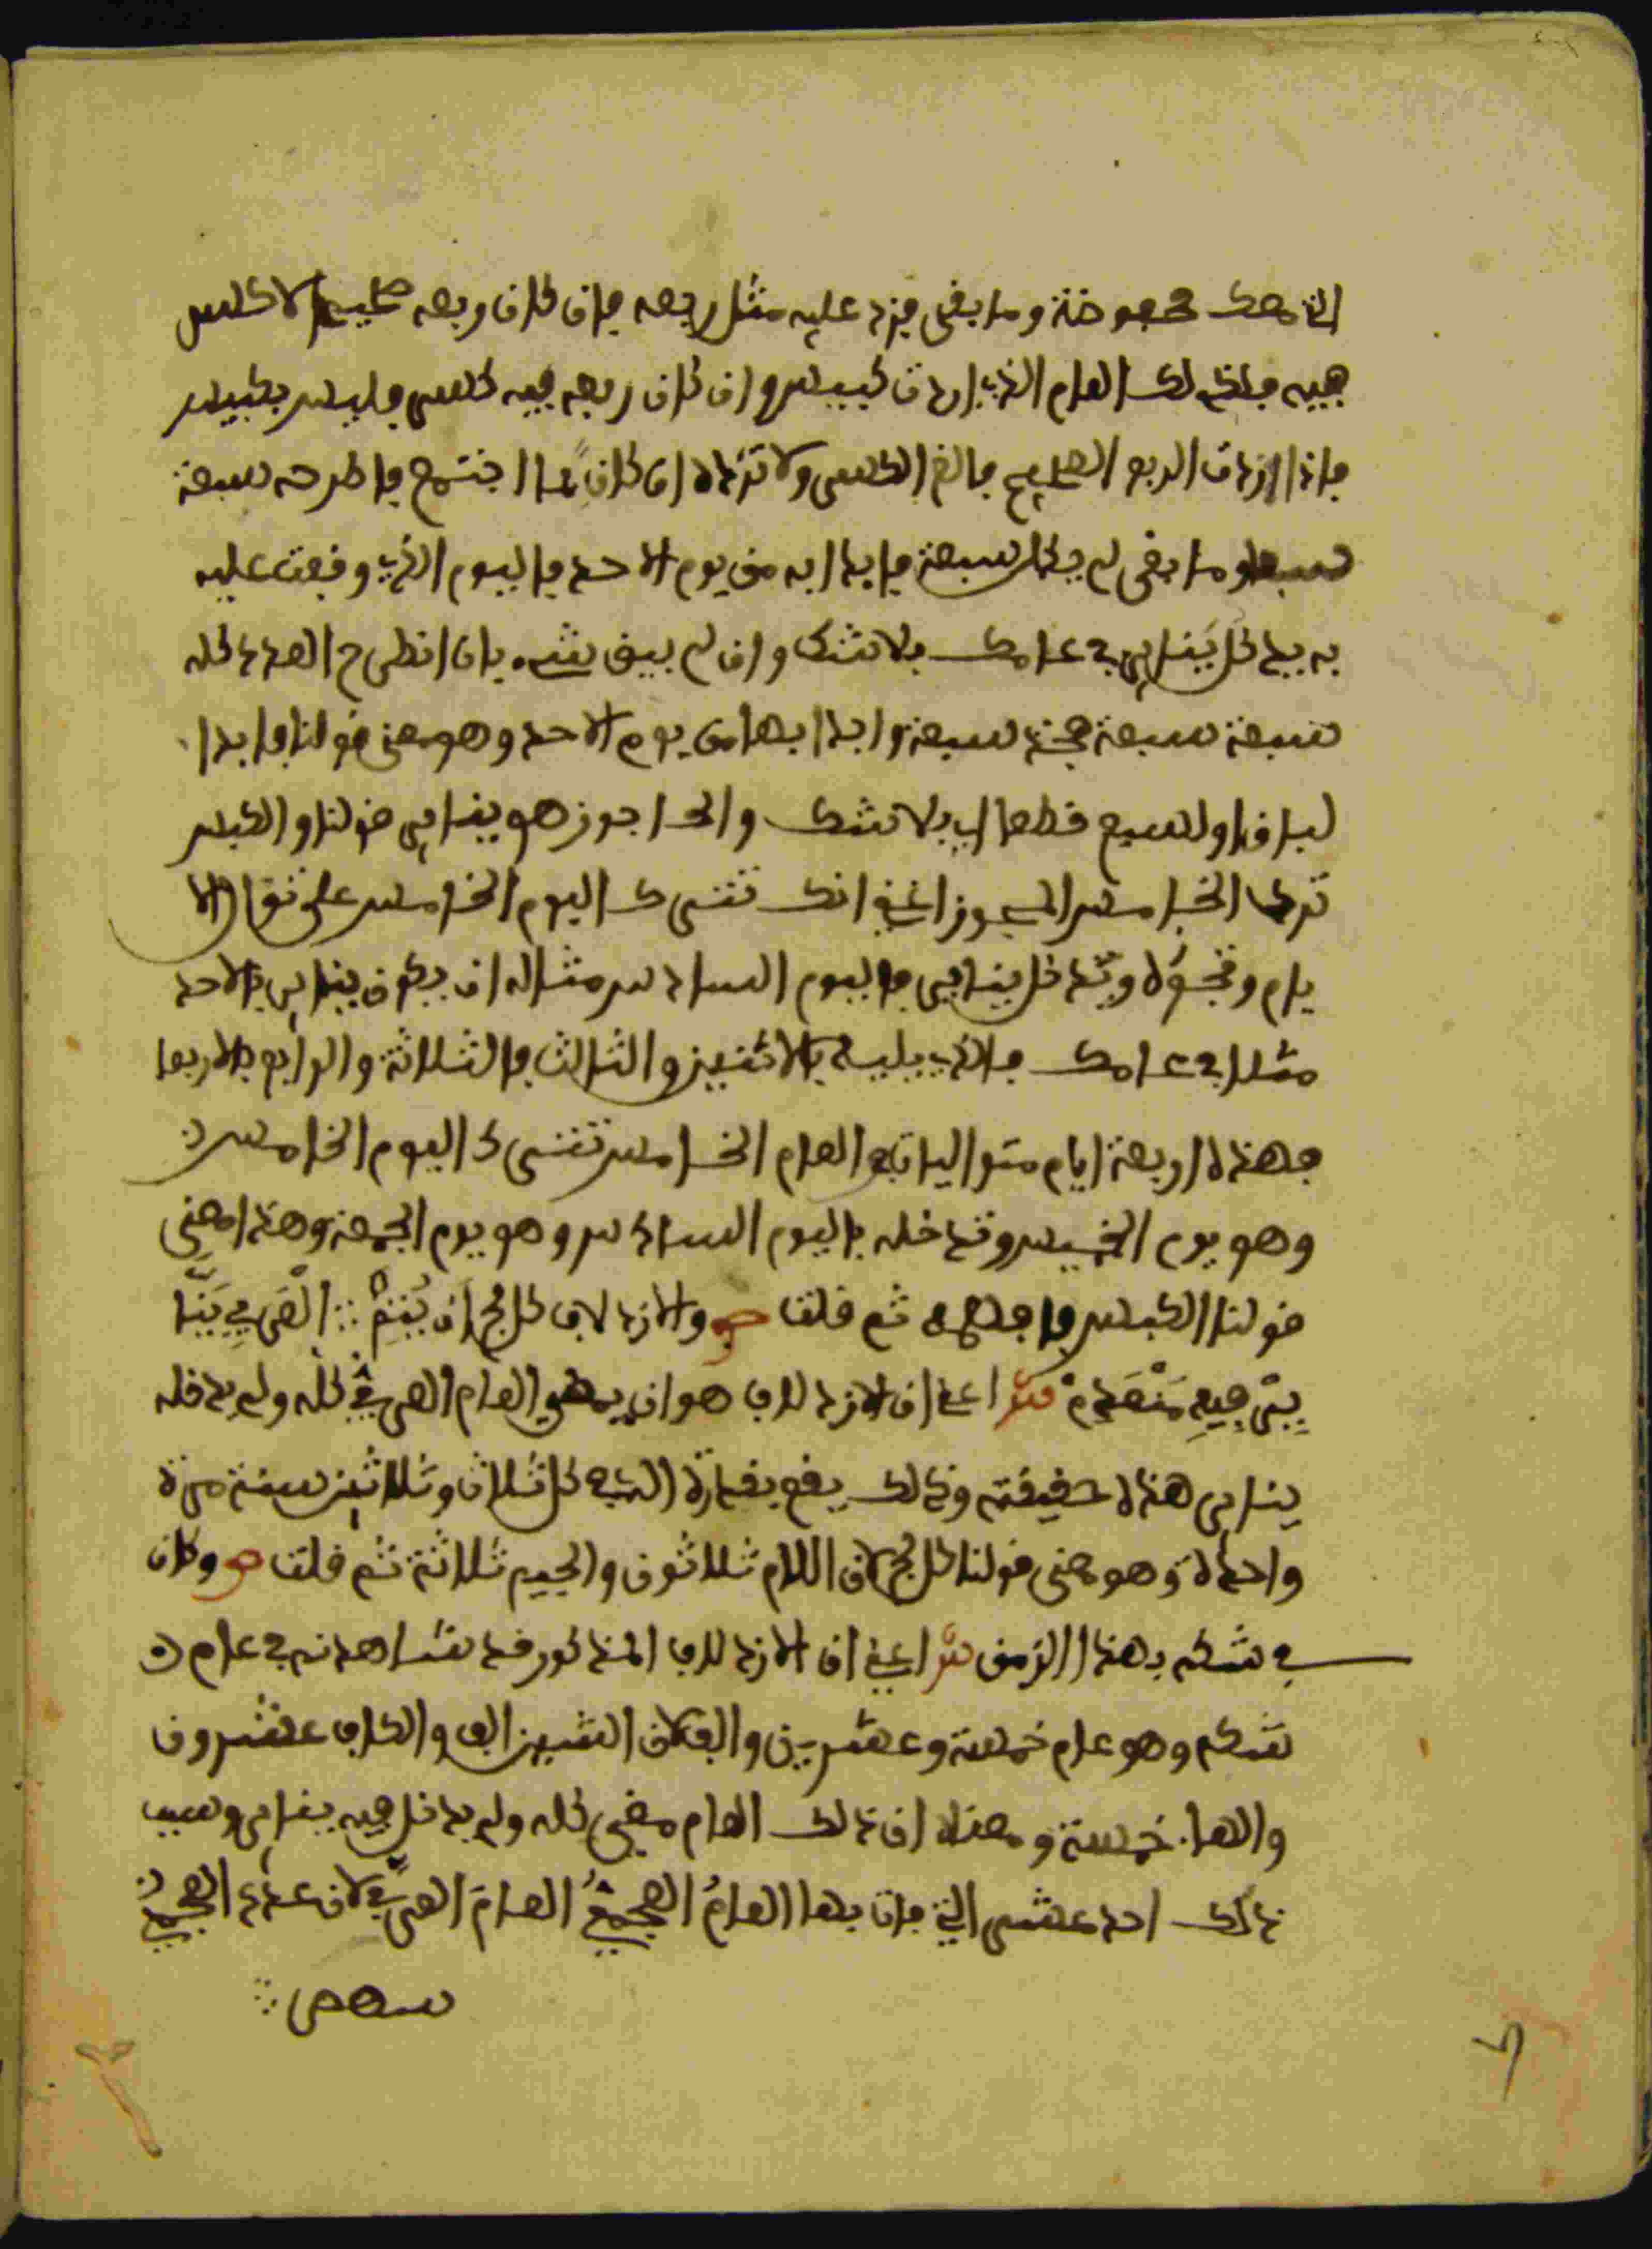 التي معك محفوظة وما بقى فزد عليه مثل ربعه فإن كان ربعه صحيحا لا كسر
فيه فلذلك العام الذي اردت كبيس وان كان ربعه فيه كسر فليس بكبيس
فإذا ازدت الربع الصحيح فالغ الكسر ولا تزده ان كان فما اجتمع فاطرحه سبعة
سبعة وما بقى لم يكمل سبعة فابدا به من يوم الاحد فاليوم الذي وقفت عليه
به يدخل يناير في عامك بلا شك وان لم يبق شيء بان انطرح العدد كله
سبعة سبعة فخذ سبعة وابدا بها من يوم الاحد وهو معنى قولنا فابدا
لباق او لسبع قطعا اي بلا شك والحاجوز هو يناير قولنا والكبس
تركا الخامس المحوز اعني انك تترك اليوم الخامس على توالي الا
يام وتجوزه ويدخل يناير باليوم السادس مثاله ان يكون يناير بالاحد
مثلا في عامك فالذي يليه بالاثنين والثالث بالثلاثة والرابع بالاربعا
فهذه اربعة ايام متواليات والعام الخامس تترك اليوم الخامس
وهو يوم الخميس وتدخله باليوم السادس وهو يوم الجمعة وهذا معنى
قولنا الكبس فافهم ثم قلت ص والازدلاف كل لج ان يتم ∴ العربي ينا
ير فيه منعدم ش اعني ان الازدلاف هو ان يمضي العام العربي كله ولم يدخله
يناير هذه حقيقته وذلك يقع بقدرة الله في كل ثلاث وثلاثين سنة مرة
واحدة وهو معنى قولنا كل لج لان اللام ثلاثون والجيم ثلاثة ثم قلت ص وكان
في شكه بهذا الزمن ش اعني ان الازدلاف المذكور قد شاهدته في عام
شكه وهو عام خمسة وعشرين والف لان الشين الف والكاف عشرون
والهاء خمسة ومعناه ان ذلك العام مضى كله ولم يدخل فيه يناير وسبب
ذلك احد عشر التي فات بها العام العجمي العام العربي لان عدد العجمي